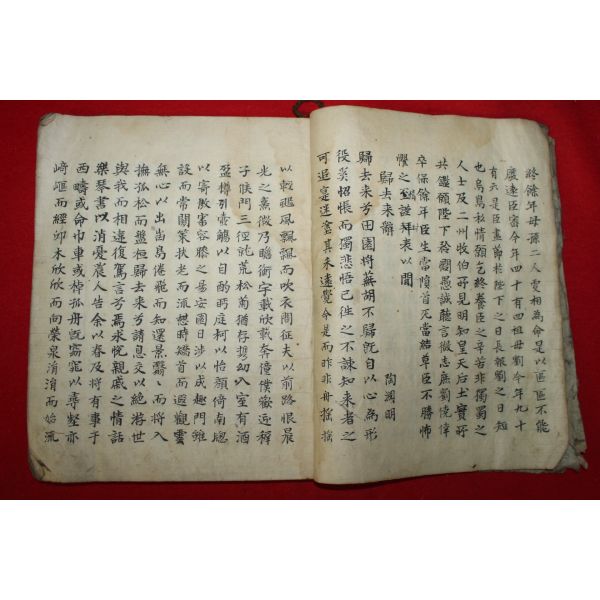 終餘年母孫二人更相為命是以區區不能
廢遠臣密今年四十有四祖母劉今年九十
有六是臣盡節於陛下之日長報劉之日短
也烏鳥私情願乞終養臣之辛苦非獨蜀之
人士及二州牧伯所見明知皇天后土實所
共鑑願陛下矜愍愚誠聽臣微志庶劉僥倖
卒保餘年臣生當隕首死當結草臣不勝怖
懼之至謹拜表以聞
歸去來辭
陶淵明
歸去來兮田園將蕪胡不歸旣自以心為形
役奚惆悵而獨悲悟已往之不諫知來者之
可追寔迷塗其未遠覺今是而昨非舟搖搖
以輕颺風飄飄而吹衣問征夫以前路恨晨
光之熹微乃瞻衡宇載欣載奔僮僕歡迎稚
子候門三徑就荒松菊猶存携幼入室有酒
盈樽引壺觴以自酌眄庭柯以怡顔倚南牕
以寄敖審容膝之易安園日涉以成趣門雖
設而常關策扶老而流憩時矯首而遐觀雲
無心以出岫鳥倦飛而知還景翳翳而將入
撫孤松而盤桓歸去來兮請息交以絶游世
與我而相違復駕言兮焉求悅親戚之情話
樂琴書以消憂農人告余以春及將有事于
西疇或命巾車或棹孤舟旣窈窕以尋壑亦
崎嶇而經卭木欣欣而向榮泉涓涓而始流